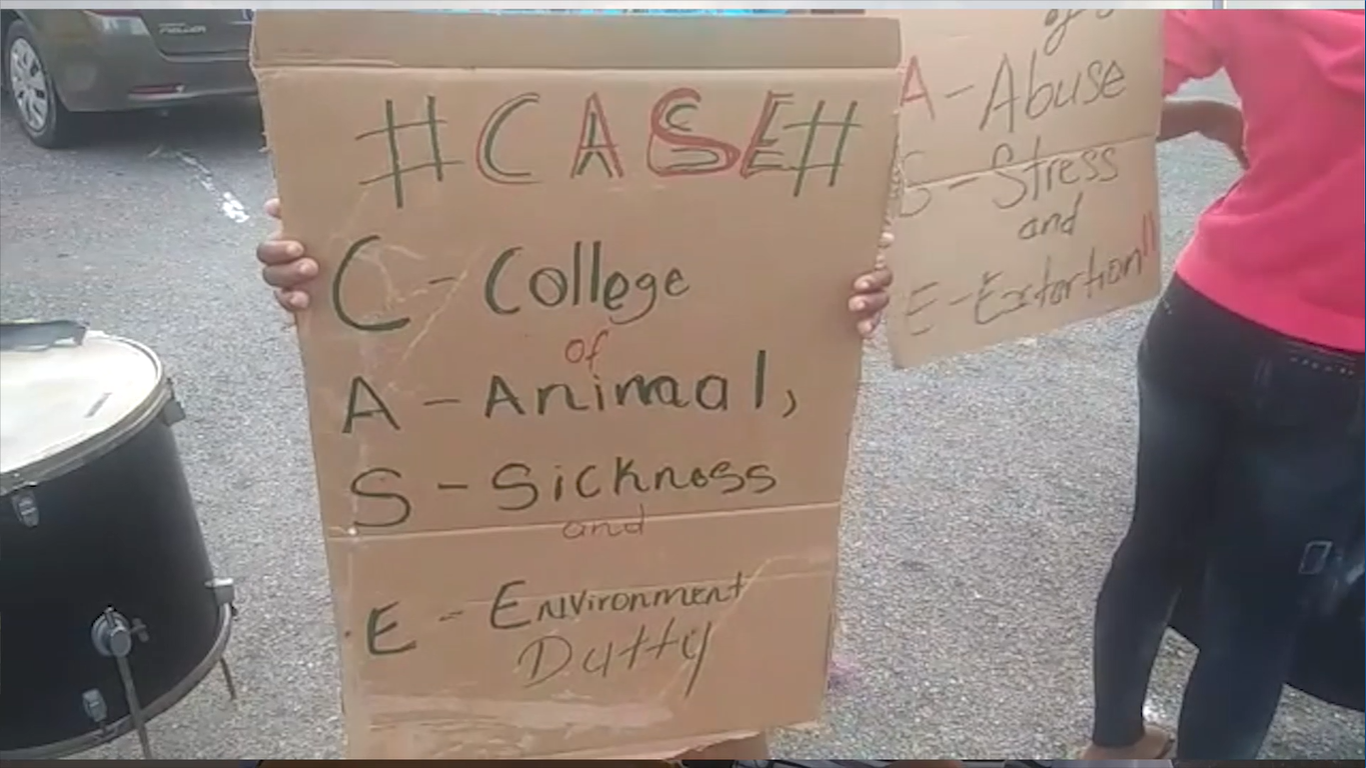 #CASE#
C - College
of
A - Animal,
S - Sickness
and
E - Environment
Dutty
A - Abuse
S - Stress
and
E - Extortion"
FIELDER